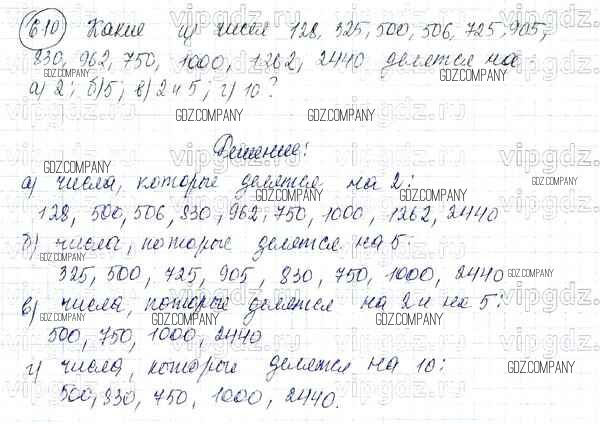 610 Какие из чисел 128, 325, 500, 506, 725, 905,
830, 962, 750, 1000, 1262, 2440 делятся на
а) 2; б) 5; в) 2 и 5; г) 10?
Решение:
а) числа, которые делятся на 2:
128, 500, 506, 830, 962, 750, 1000, 1262, 2440
б) числа, которые делятся на 5:
325, 500, 725, 905, 830, 750, 1000, 2440
в) числа, которые делятся на 2 и на 5:
500, 750, 1000, 2440
г) числа, которые делятся на 10:
500, 830, 750, 1000, 2440.